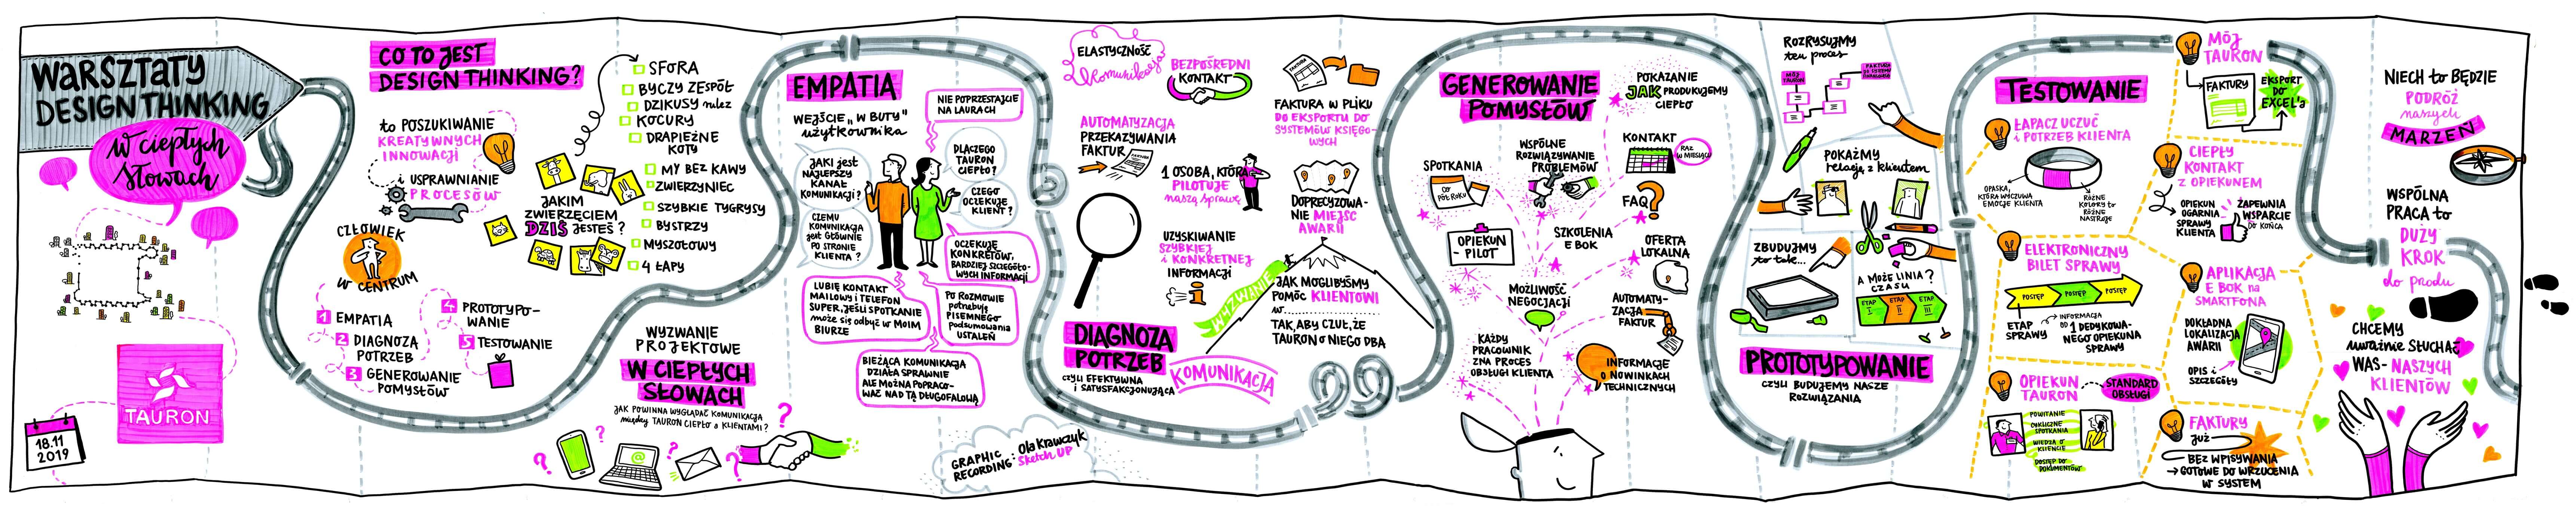 WARSZTATY
DESIGN THINKING
w ciepłych
słowach
TAURON
18.11
2019
CO TO JEST
DESIGN THINKING?
to POSZUKIWANIE
KREATYWNYCH
INNOWACJI
i USPRAWNIANIE
PROCESÓW
CZŁOWIEK
w CENTRUM
1 EMPATIA
2 DIAGNOZA
POTRZEB
3 GENEROWANIE
POMYSŁÓW
4 PROTOTYPO-
WANIE
5 TESTOWANIE
JAKIM
ZWIERZĘCIEM
DZIŚ JESTEŚ?
SFORA
BYCZY ZESPÓŁ
DZIKUSY rulez
KOCURY
DRAPIEŻNE
KOTY
MY BEZ KAWY
ZWIERZYNIEC
SZYBKIE TYGRYSY
BYSTRZY
MYSZOŁOWY
4 ŁAPY
WYZWANIE
PROJEKTOWE
W CIEPŁYCH
SŁOWACH
JAK POWINNA WYGLĄDAĆ KOMUNIKACJA
między TAURON CIEPŁO a KLIENTAMI?
EMPATIA
WEJŚCIE „W BUTY"
użytkownika
NIE POPRZESTAJCIE
NA LAURACH
JAKI jest
NAJLEPSZY
KANAŁ
KOMUNIKACJI?
DLACZEGO
TAURON
CIEPŁO?
CZEGO
OCZEKUJE
KLIENT?
CZEMU
KOMUNIKACJA
jest GŁÓWNIE
PO STRONIE
KLIENTA?
OCZEKUJĘ
KONKRETÓW,
BARDZIEJ SZCZEGÓŁO-
WYCH INFORMACJI
LUBIĘ KONTAKT
MAILOWY i TELEFON
SUPER, JEŚLI SPOTKANIE
może się odbyć w MOIM
BIURZE
PO ROZMOWIE
potrzebuję
PISEMNEGO
Podsumowania
USTALEŃ
BIEŻĄCA KOMUNIKACJA
DZIAŁA SPRAWNIE
ALE MOŻNA POPRACO-
WAĆ NAD TĄ DŁUGOFALOWĄ
GRAPHIC
RECORDING: Ola Krawczyk
Sketch UP
ELASTYCZNOŚĆ
Komunikacja
BEZPOŚREDNI
KONTAKT
AUTOMATYZACJA
PRZEKAZYWANIA
FAKTUR
FAKTURA
FAKTURA W PLIKU
DO EKSPORTU DO
SYSTEMÓW KSIĘGO-
WYCH
1 OSOBA, KTÓRA
PILOTUJE
naszą sprawę
DOPRECYZOWA-
NIE MIEJSC
AWARII
UZYSKIWANIE
SZYBKIEJ
i KONKRETNEJ
INFORMACJI
i
WYZWANIE
JAK MOGLIBYŚMY
POMÓC KLIENTOWI
w..........
TAK, ABY CZUŁ, ŻE
TAURON o NIEGO DBA
DIAGNOZA
POTRZEB
czyli EFEKTYWNA
i SATYSFAKCJONUJĄCA
KOMUNIKACJA
GENEROWANIE
POMYSŁÓW
POKAZANIE
JAK PRODUKUJEMY
CIEPŁO
SPOTKANIA
CO
PÓŁ ROKU
WSPÓLNE
ROZWIĄZYWANIE
PROBLEMÓW
KONTAKT
RAZ
W MIESIĄCU
FAQ?
OPIEKUN
- PILOT
SZKOLENIA
E BOK
OFERTA
LOKALNA
MOŻLIWOŚĆ
NEGOCJACJI
AUTOMATY-
ZACJA
FAKTUR
KAŻDY
PRACOWNIK
ZNA PROCES
OBSŁUGI KLIENTA
INFORMACJE
O NOWINKACH
TECHNICZNYCH
ROZRYSUJMY
ten proces
MÓJ
TAURON
POKAŻMY
relację z klientem
ZBUDUJMY
to tak...
A MOŻE LINIA
CZASU?
ETAP
I
ETAP
II
ETAP
III
PROTOTYPOWANIE
CZYLI BUDUJEMY NASZE
ROZWIĄZANIA
TESTOWANIE
ŁAPACZ UCZUĆ
i POTRZEB KLIENTA
OPASKA,
KTÓRA WYCZUWA
EMOCJE KLIENTA
RÓŻNE
KOLORY to
RÓŻNE
NASTROJE
ELEKTRONICZNY
BILET SPRAWY
POSTĘP
POSTĘP
POSTĘP
ETAP
SPRAWY
INFORMACJA
OD 1 DEDYKOWA-
NEGO OPIEKUNA
SPRAWY
OPIEKUN
TAURON
STANDARD
OBSŁUGI
POWITANIE
CYKLICZNE
SPOTKANIA
WIEDZA O
KLIENCIE
DOSTĘP DO
DOKUMENTÓW
MÓJ
TAURON
FAKTURY
EKSPORT
DO
EXCEL'a
CIEPŁY
KONTAKT
Z OPIEKUNEM
OPIEKUN
OGARNIA
SPRAWY
KLIENTA
ZAPEWNIA
WSPARCIE
DO KOŃCA
APLIKACJA
E BOK na
SMARTFONA
DOKŁADNA
LOKALIZACJA
AWARII
OPIS i
SZCZEGÓŁY
FAKTURY
JUŻ
BEZ WPISYWANIA
→ GOTOWE DO WRZUCENIA
W SYSTEM
NIECH to BĘDZIE
PODRÓŻ
naszych
MARZEŃ
WSPÓLNA
PRACA to
DUŻY
KROK
do przodu
CHCEMY
uważnie SŁUCHAĆ
WAS - NASZYCH
KLIENTÓW